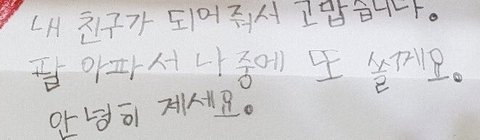 내 친구가 되어줘서 고맙습니다.
팔 아파서 나중에 또 쓸게요.
안녕히 제세요.